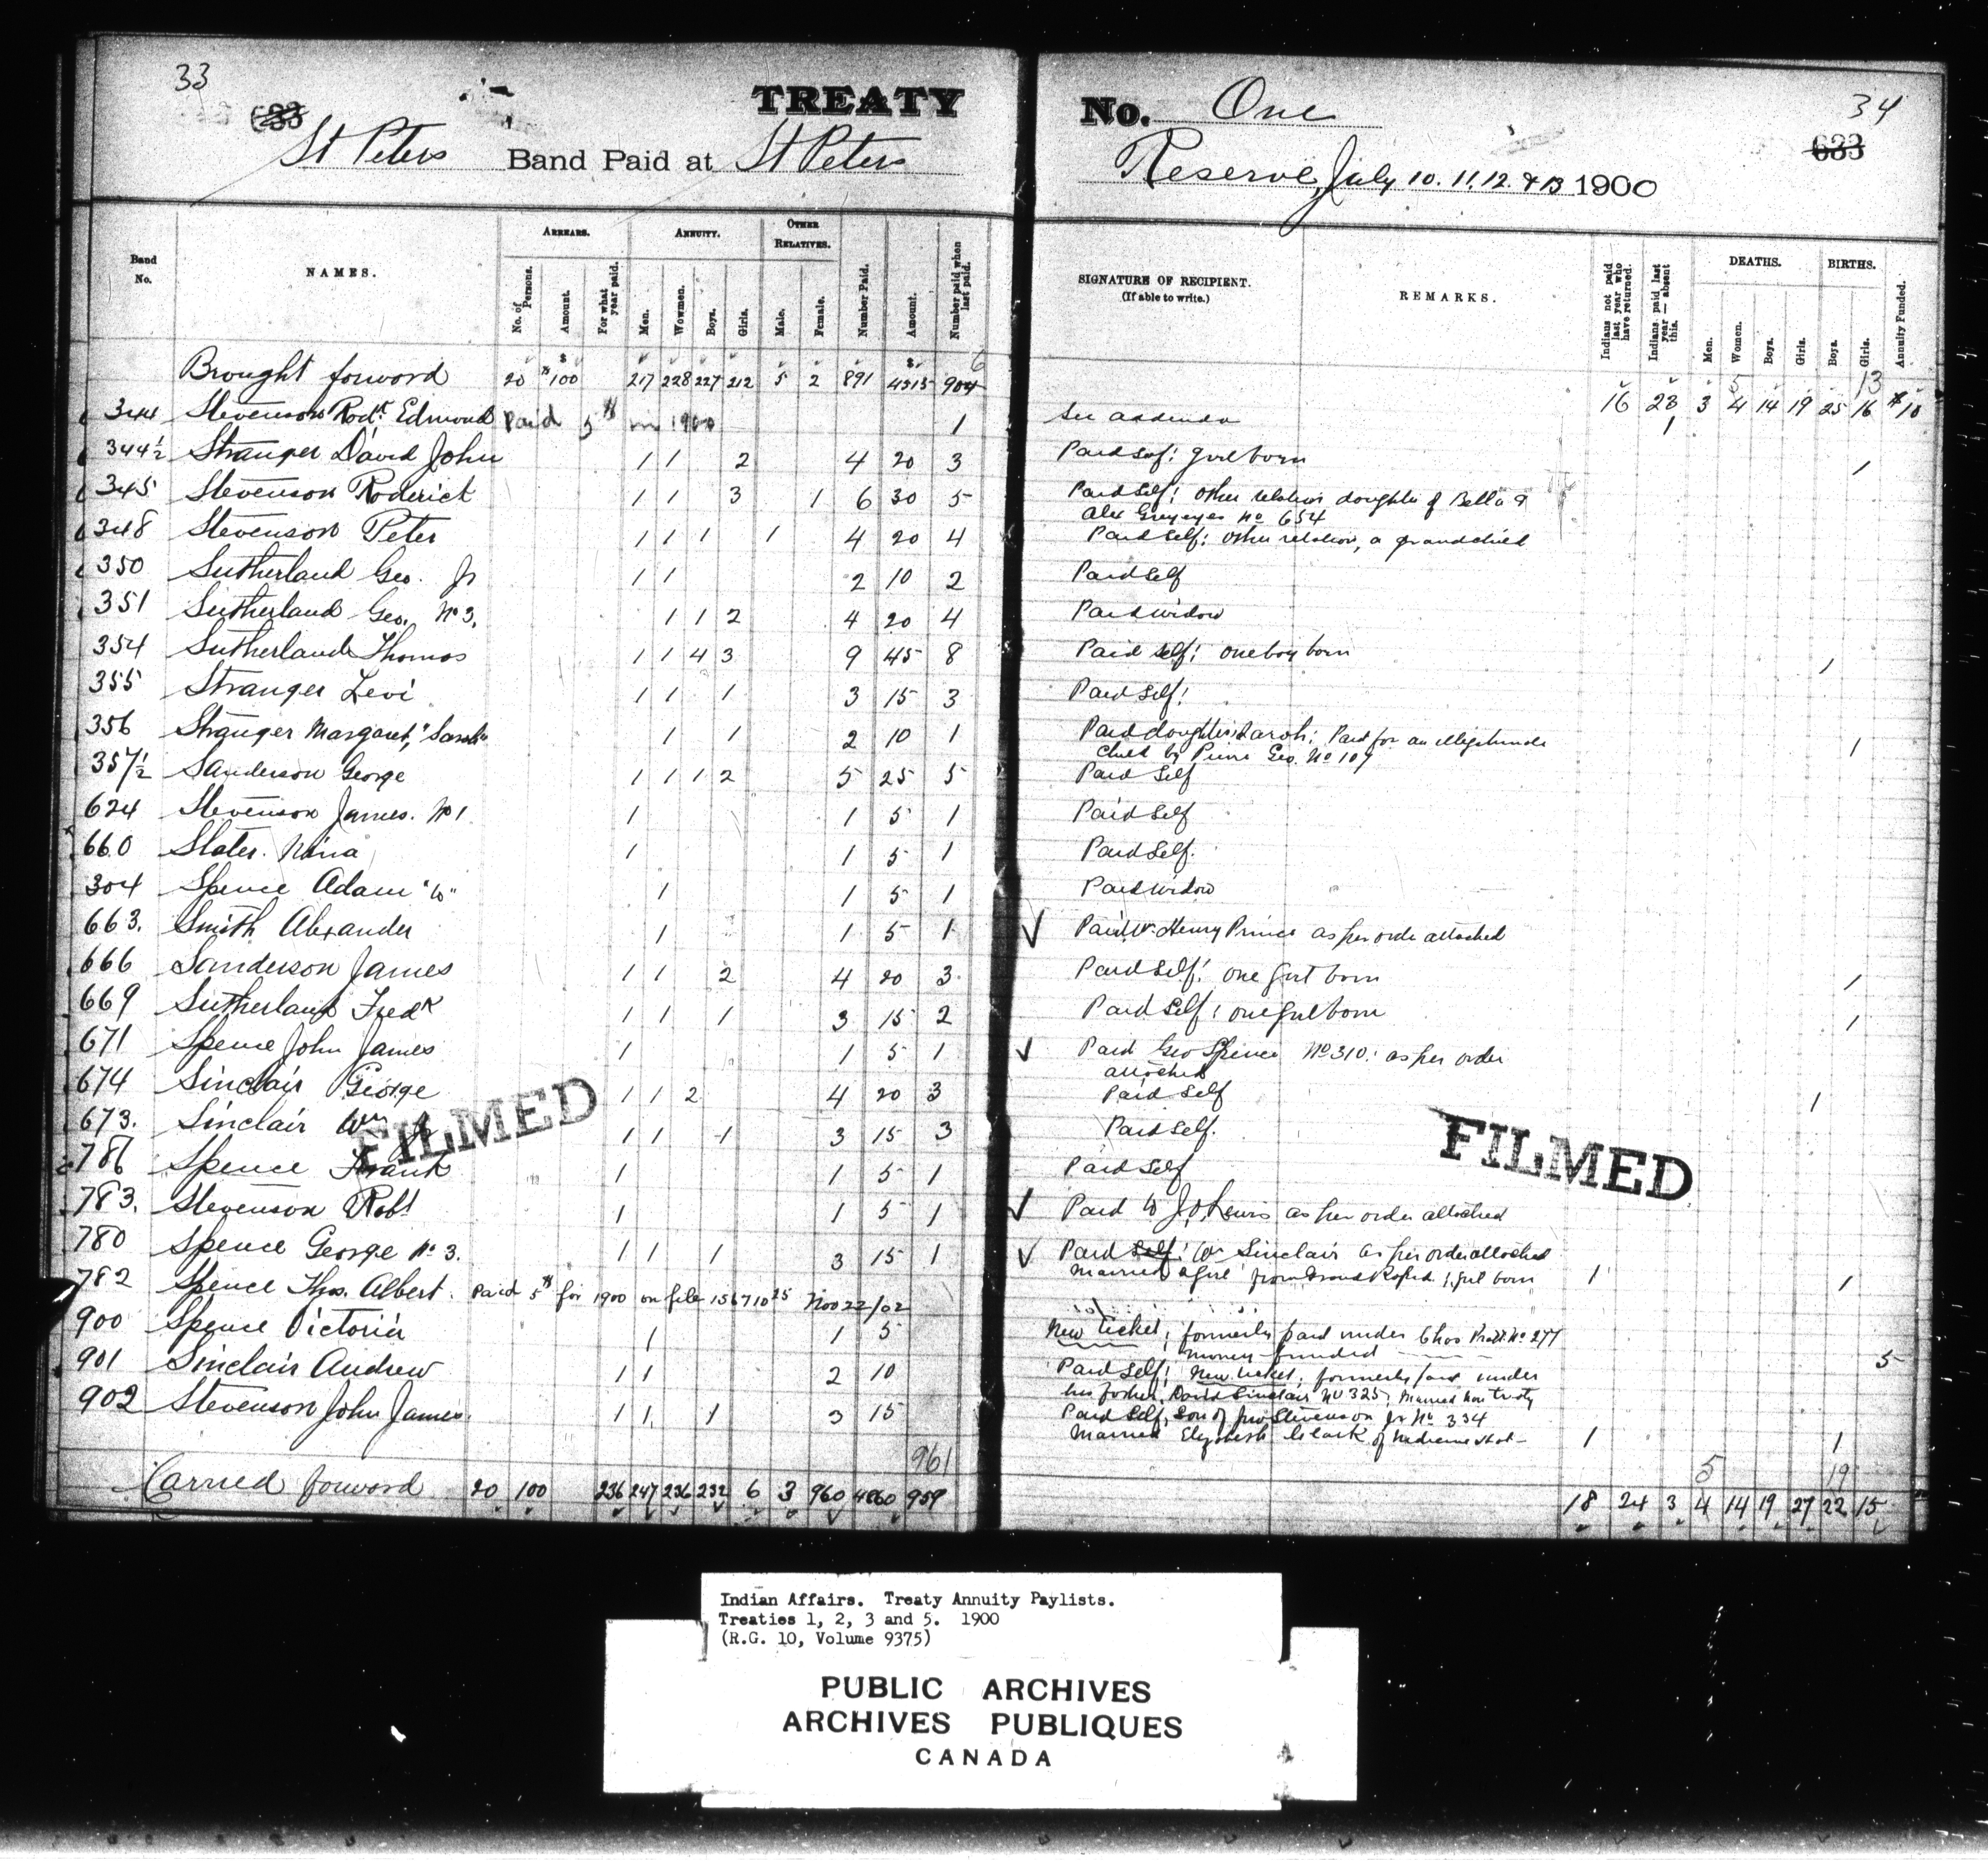 33
633
TREATY
St Peters Band Paid at St Peters
Band No.
NAMES.
ARREARS.
ANNUITY.
OTHER RELATIVES.
No. of Persons.
Amount.
For what year paid.
Men.
Wowmen.
Boys.
Girls.
Male.
Female.
Number Paid.
Amount.
Number paid when last paid.
Brought forward 20 $100 217 228 227 212 5 2 891 4515 904 6
344 Stevenson Rodk. Edmond Paid 5$ in 1900 1
344½ Stranger David John 1 1 2 4 20 3
345 Stevenson Roderick 1 1 3 1 6 30 5
348 Stevenson Peter 1 1 1 1 4 20 4
350 Sutherland Geo. Jr 1 1 2 10 2
351 Sutherland Geo. No 3. 1 1 2 4 20 4
354 Sutherland Thomas 1 1 4 3 9 45 8
355 Stranger Levi 1 1 1 3 15 3
356 Stranger Margaret, "Sarah" 1 1 2 10 1
357½ Sanderson George 1 1 1 2 5 25 5
624 Stevenson James. No 1 1 1 5 1
660 Slater. 1 1 5 1
304 Spence Adam "W" 1 1 5 1
663. Smith Alexander 1 1 5 1
666 Sanderson James 1 1 2 4 20 3
669 Sutherland Fredk 1 1 1 3 15 2
671 Spence John James 1 1 5 1
674 Sinclair George 1 1 2 4 20 3
673. Sinclair Wm Jr 1 1 1 3 15 3
786 Spence Frank 1 1 5 1
783. Stevenson Robt 1 1 5 1
780 Spence George No 3. 1 1 1 3 15 1
782 Spence Thos. Albert. Paid 5$ for 1900 on file 156710 25 Nov 22/02
900 Spence Victoria 1 1 5
901 Sinclair Andrew 1 1 2 10
902 Stevenson John James. 1 1 1 3 15
961
Carried forward 20 100 236 247 236 232 6 3 960 4860 959
FILMED
34
633
No. One
Reserve, July 10. 11, 12. & 13 1900
SIGNATURE OF RECIPIENT.
(If able to write.)
REMARKS.
Indians not paid last year who have returned.
Indians paid last year—absent this.
DEATHS.
Men.
Women.
Boys.
Girls.
BIRTHS.
Boys.
Girls.
Annuity Funded.
5 13
16 23 3 4 14 19 25 16 $10
See addenda 1
Paid self: girl born 1
Paid Self; other relation daughter of Bella &
Alex Greyeyes No 654
Paid Self: other relation, a grandchild
Paid Self
Paid widow
Paid self; one boy born 1
Paid Self!
Paid daughter Sarah: Paid for an illegitimate
child by Geo. No 107 1
Paid Self
Paid Self
Paid Self.
Paid widow
Paid Wm. Henry Prince as per order attached
Paid Self! one girl born 1
Paid Self; one girl born 1
Paid Geo Spence No 310: as per order
attached
Paid Self 1
Paid Self.
Paid Self
Paid W J. O. Lewis as per order attached
Paid Self! Wm Sinclair as per order attached
Married a girl from Grand Rapids. 1 girl born 1 1
New ticket; formerly paid under Chas Pratt No 277
Money funded 5
Paid Self! New ticket; formerly paid under
his father, David Sinclair No 325, Married Non treaty
Paid Self, Son of Jno Stevenson Jr No 334
Married Elizabeth Clark of 1 1
5 19
18 24 3 4 14 19 27 22 15
FILMED
Indian Affairs. Treaty Annuity Paylists.
Treaties 1, 2, 3 and 5. 1900
(R.G. 10, Volume 9375)
PUBLIC ARCHIVES
ARCHIVES PUBLIQUES
CANADA